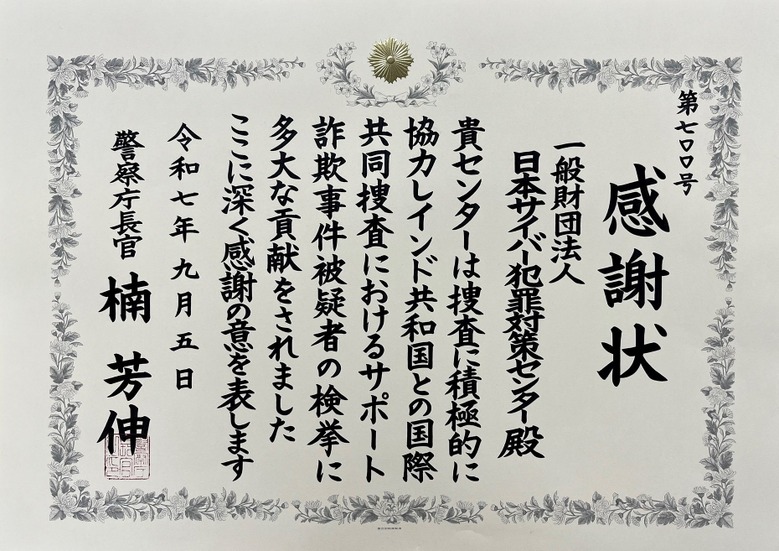 第七〇〇号
感謝状
一般財団法人
日本サイバー犯罪対策センター殿
貴センターは捜査に積極的に
協力しインド共和国との国際
共同捜査におけるサポート
詐欺事件被疑者の検挙に
多大な貢献をされました
ここに深く感謝の意を表します
令和七年九月五日
警察庁長官 楠芳伸